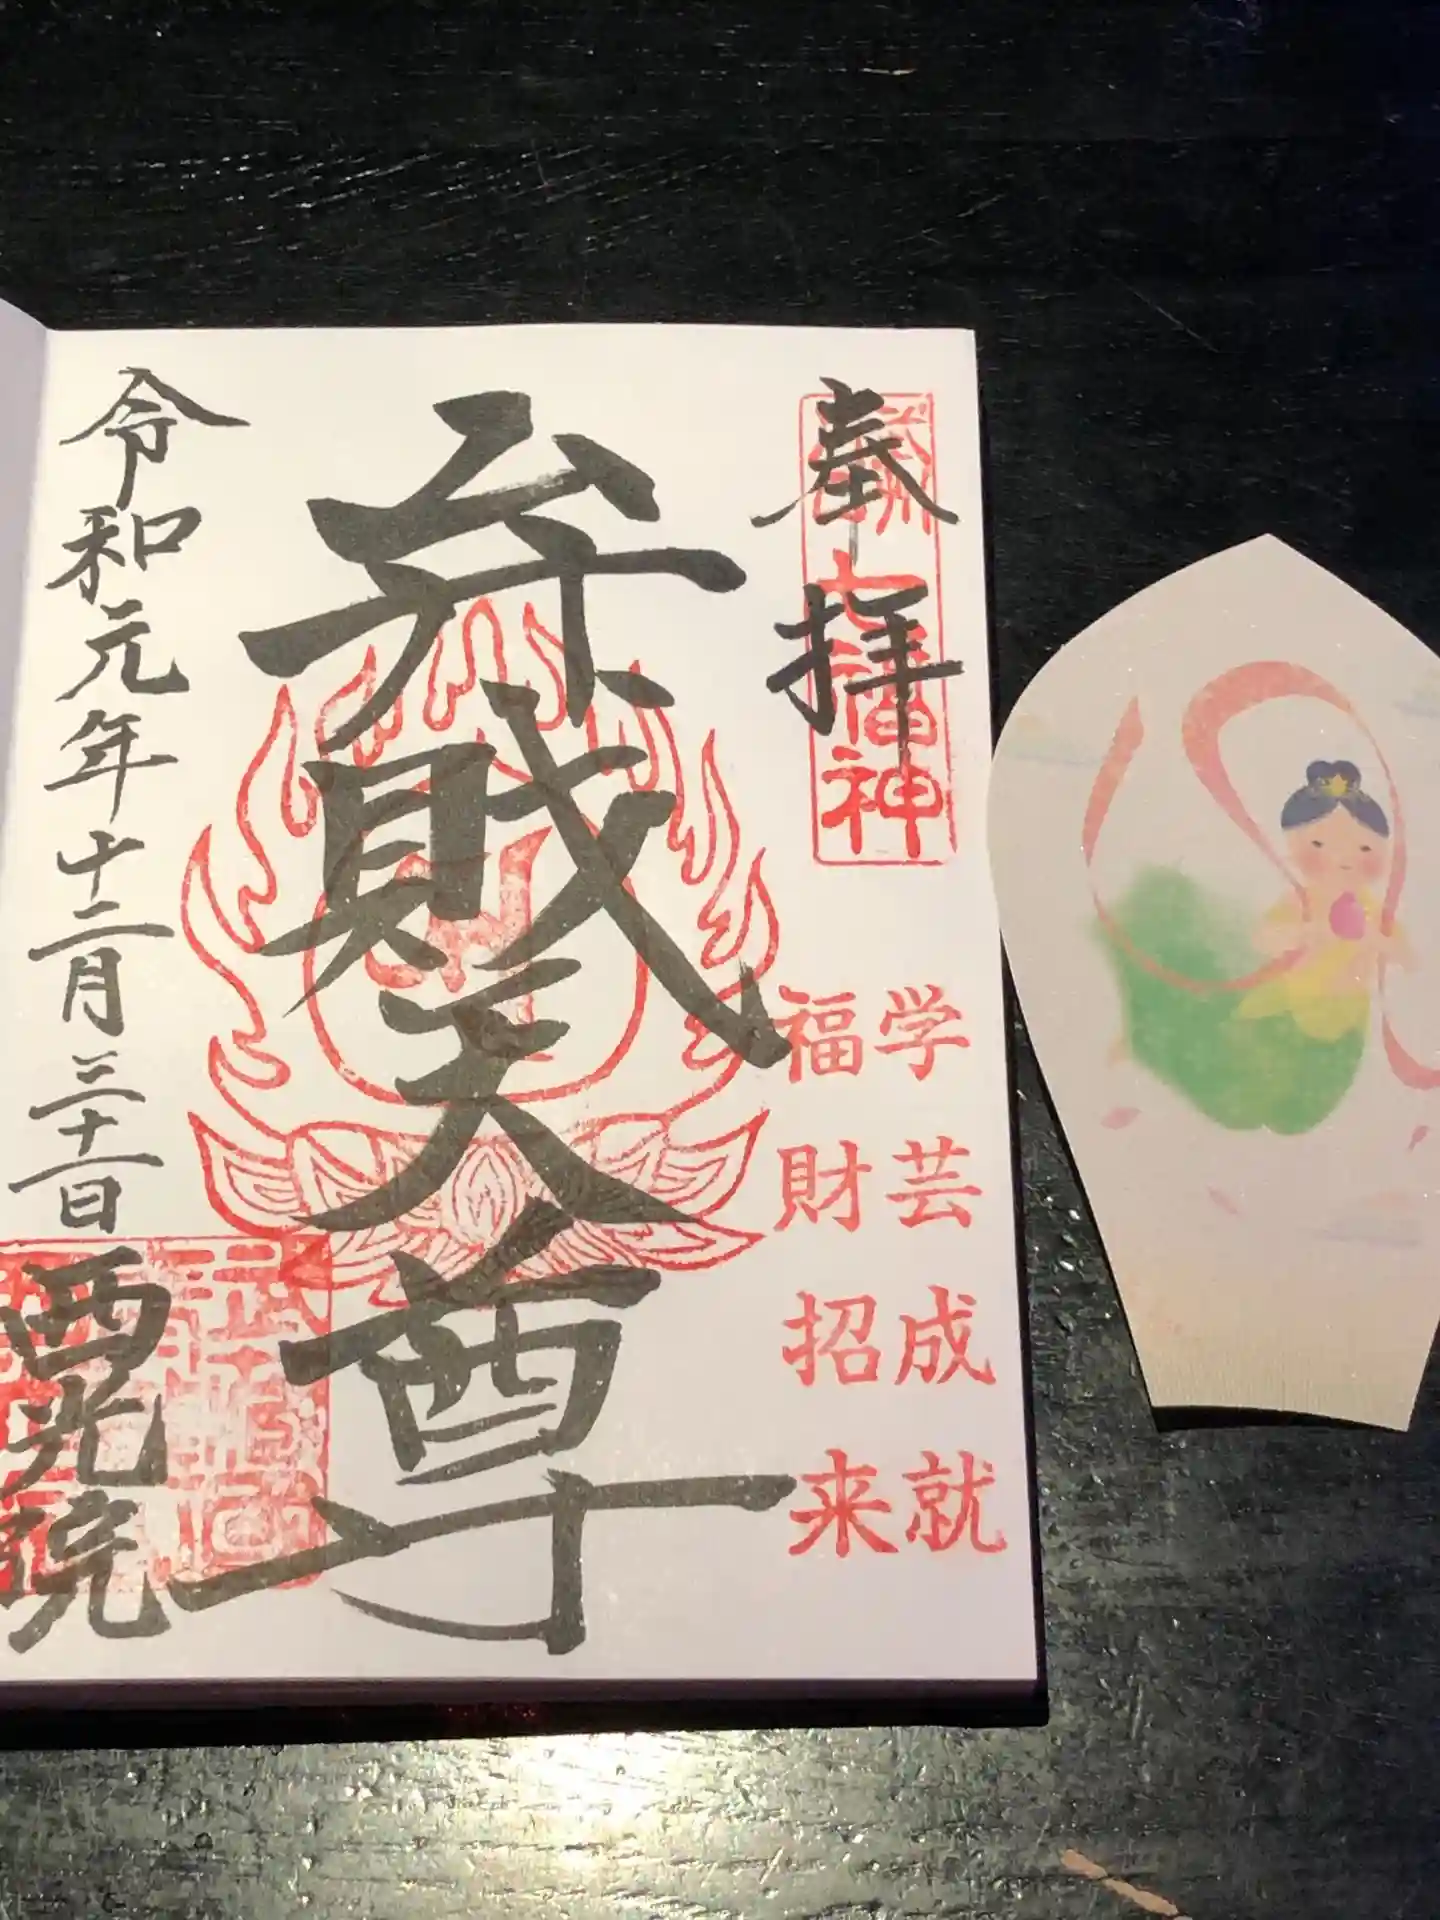 奉拝
七福神
学芸成就
福財招来
弁財天尊
令和元年十二月三十一日
西光院